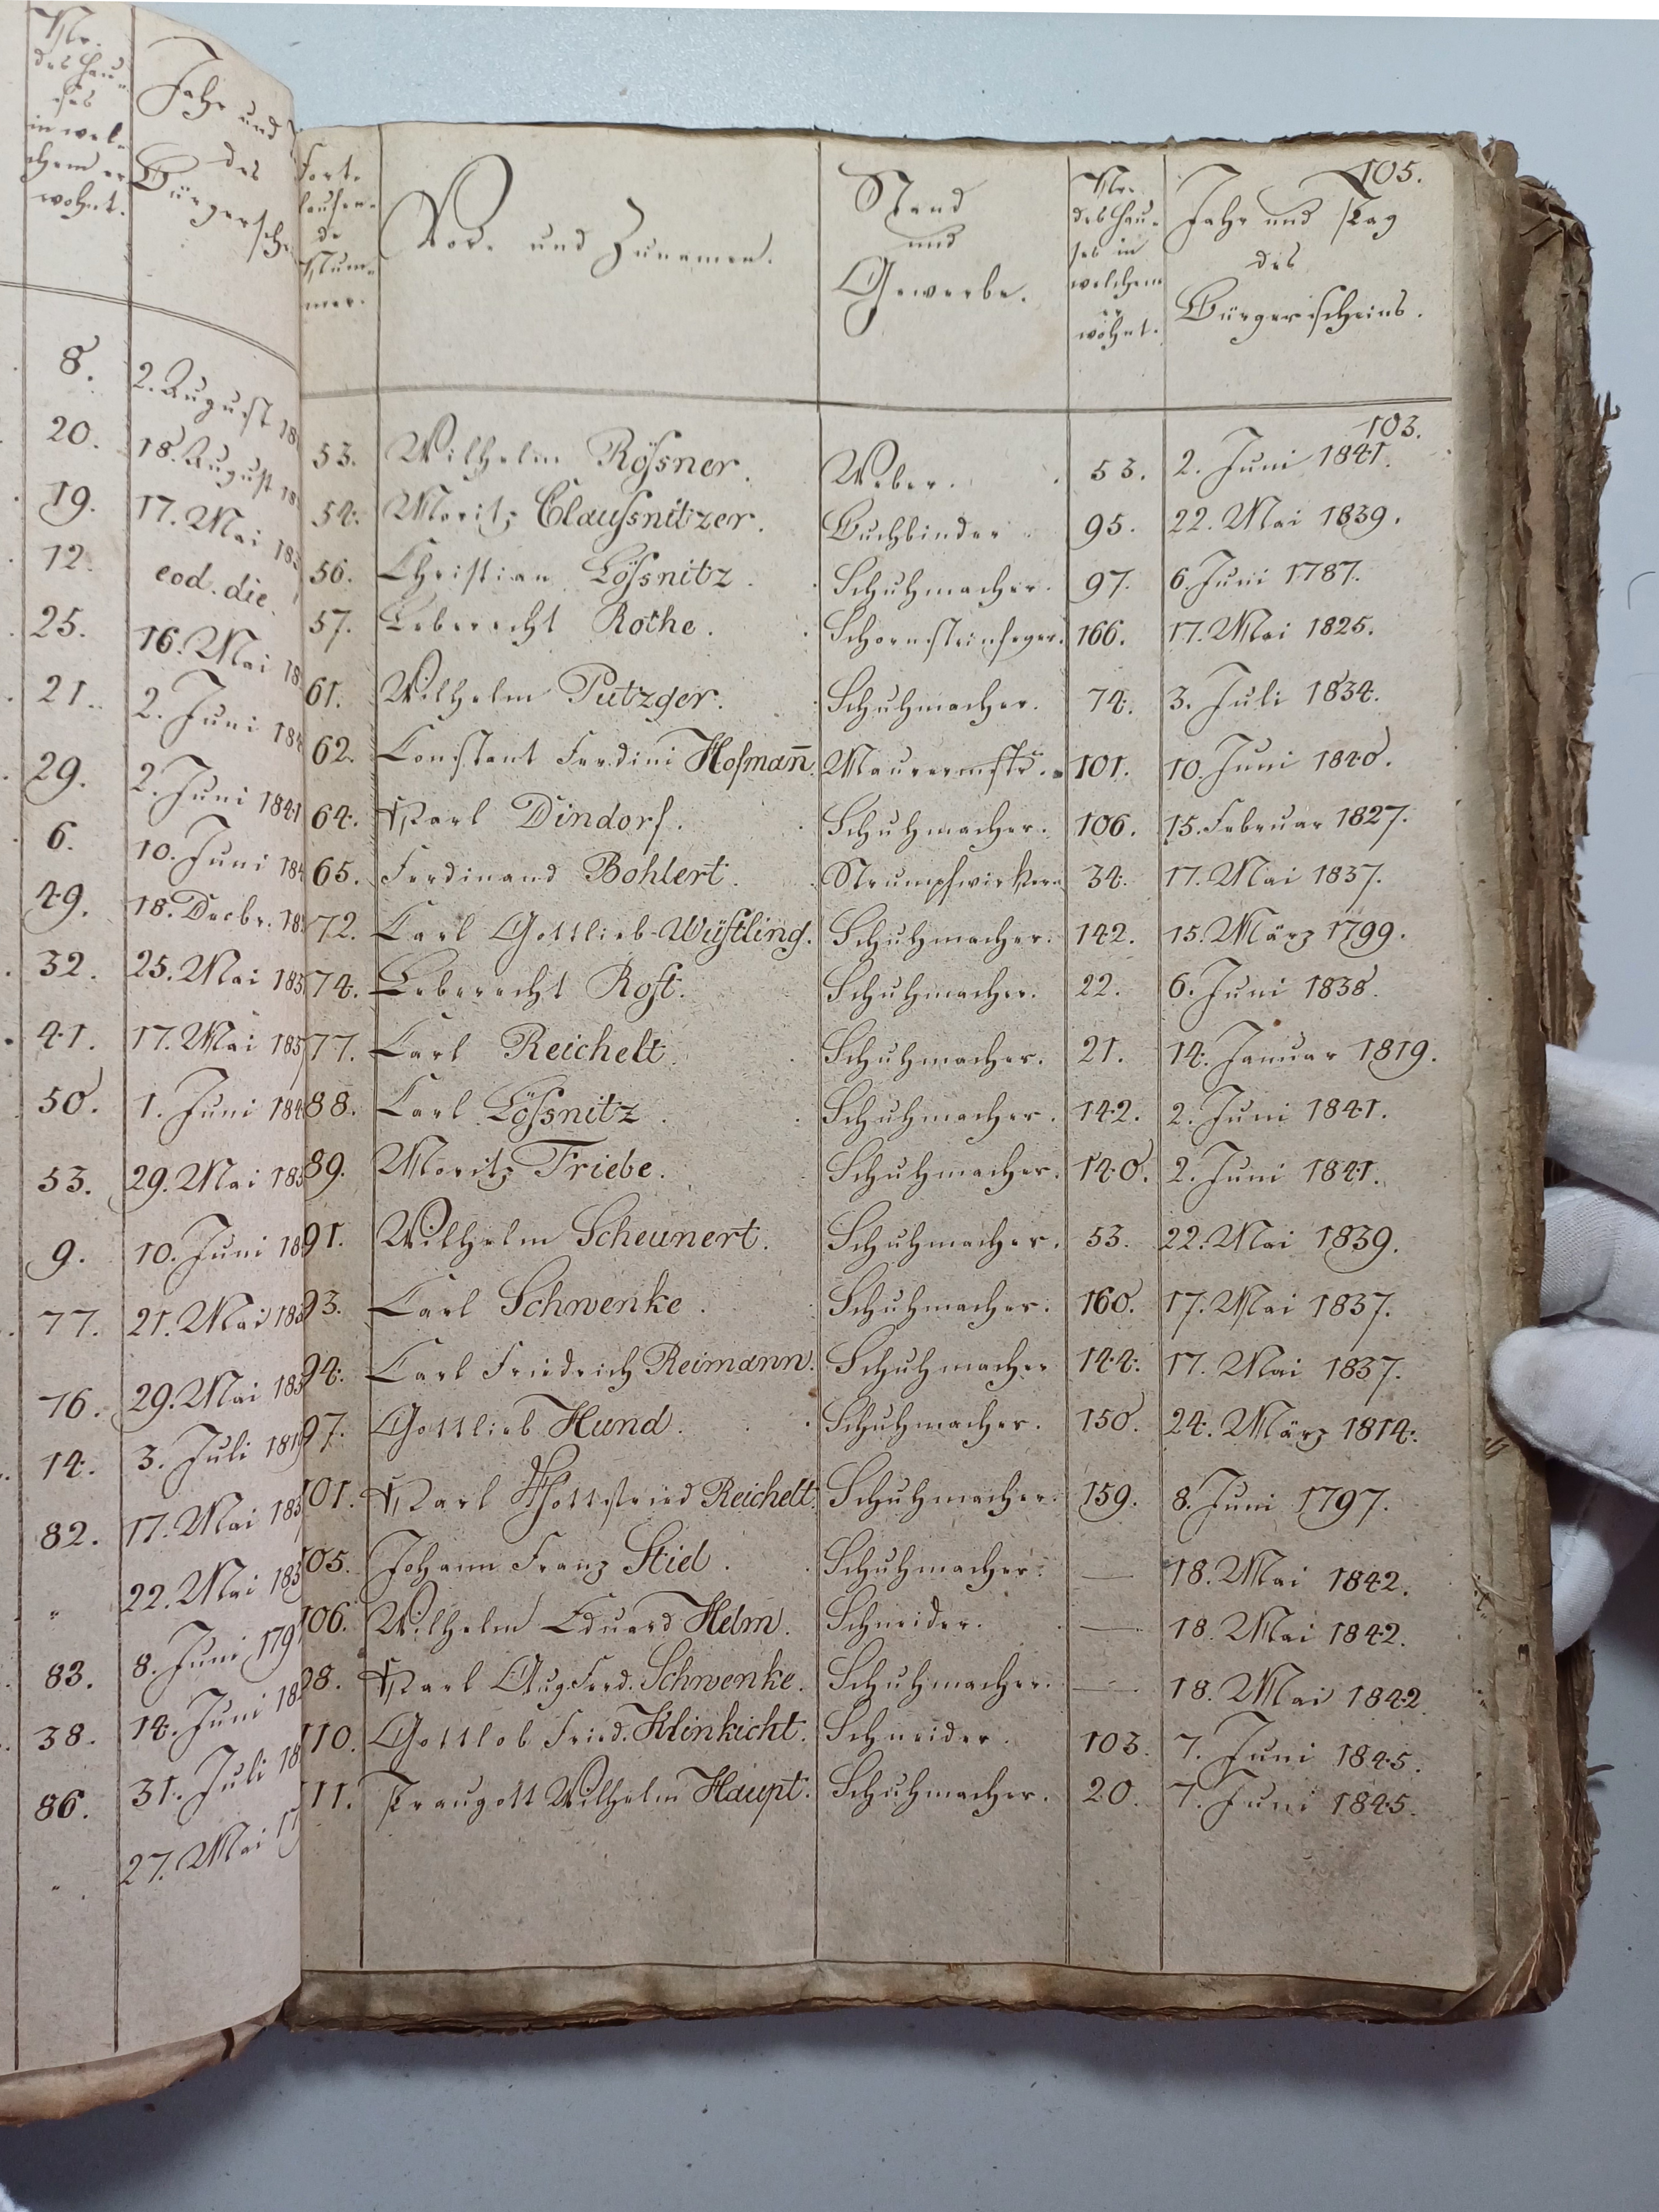 Nr.
des Hau-
ses
in wel-
chem er
wohnt.
Jahr und
des
Bürgersche
8. 2. August 18
20. 18. August 18
19. 17. Mai 183
12. eod. die.
25. 16. Mai 18
21. 2. Juni 184
29. 2. Juni 1841
6. 10. Juni 184
49. 18. Decbr. 18
32. 25. Mai 183
41. 17. Mai 183
50. 1. Juni 184
53. 29. Mai 183
9. 10. Juni 18
77. 21. Mai 183
76. 29. Mai 183
14. 3. Juli 181
82. 17. Mai 183
" 22. Mai 183
83. 8. Juni 179
38. 14. Juni 18
86. 31. Juli 18
" 27. Mai 17
105.
Fort-
laufen-
de
Num-
mer.
Vor- und Zunamen.
Stand
und
Gewerbe.
Nr.
des Hau-
ses in
welchem
er
wohnt.
Jahr und Tag
des
Bürgerscheins.
103.
53. Wilhelm Rößner. Weber. 53. 2. Juni 1841.
54. Moritz Claußnitzer. Buchbinder 95. 22. Mai 1839.
56. Christian Lößnitz. Schuhmacher. 97. 6. Juni 1787.
57. Leberecht Rothe. Schornsteinfeger. 166. 17. Mai 1825.
61. Wilhelm Putzger. Schuhmacher. 74. 3. Juli 1834.
62. Constant Ferdini Hofman̅. Maurermstr. 101. 10. Juni 1840.
64. Karl Dindorf. Schuhmacher. 106. 15. Februar 1827.
65. Ferdinand Bohlert. Strumpfwirker 34. 17. Mai 1837.
72. Carl Gottlieb Wüstling. Schuhmacher. 142. 15. März 1799.
74. Leberecht Rost. Schuhmacher. 22. 6. Juni 1838.
77. Carl Reichelt. Schuhmacher. 21. 14. Januar 1819.
88. Carl Lößnitz. Schuhmacher. 142. 2. Juni 1841.
89. Moritz Friebe. Schuhmacher. 140. 2. Juni 1841.
91. Wilhelm Scheunert. Schuhmacher. 53. 22. Mai 1839.
93. Carl Schwenke. Schuhmacher. 160. 17. Mai 1837.
94. Carl Friedrich Reimann. Schuhmacher 144. 17. Mai 1837.
97. Gottlieb Hund. Schuhmacher. 150. 24. März 1814.
101. Karl Gottfried Reichelt. Schuhmacher. 159. 8. Juni 1797.
105. Johann Franz Stiel. Schuhmacher. — 18. Mai 1842.
106. Wilhelm Eduard Helm. Schneider. — 18. Mai 1842.
08. Karl Aug. Ferd. Schwenke. Schuhmacher. — 18. Mai 1842.
110. Gottlob Fried. Klinkicht. Schneider. 103. 7. Juni 1845.
111. Traugott Wilhelm Haupt. Schuhmacher. 20. 7. Juni 1845.